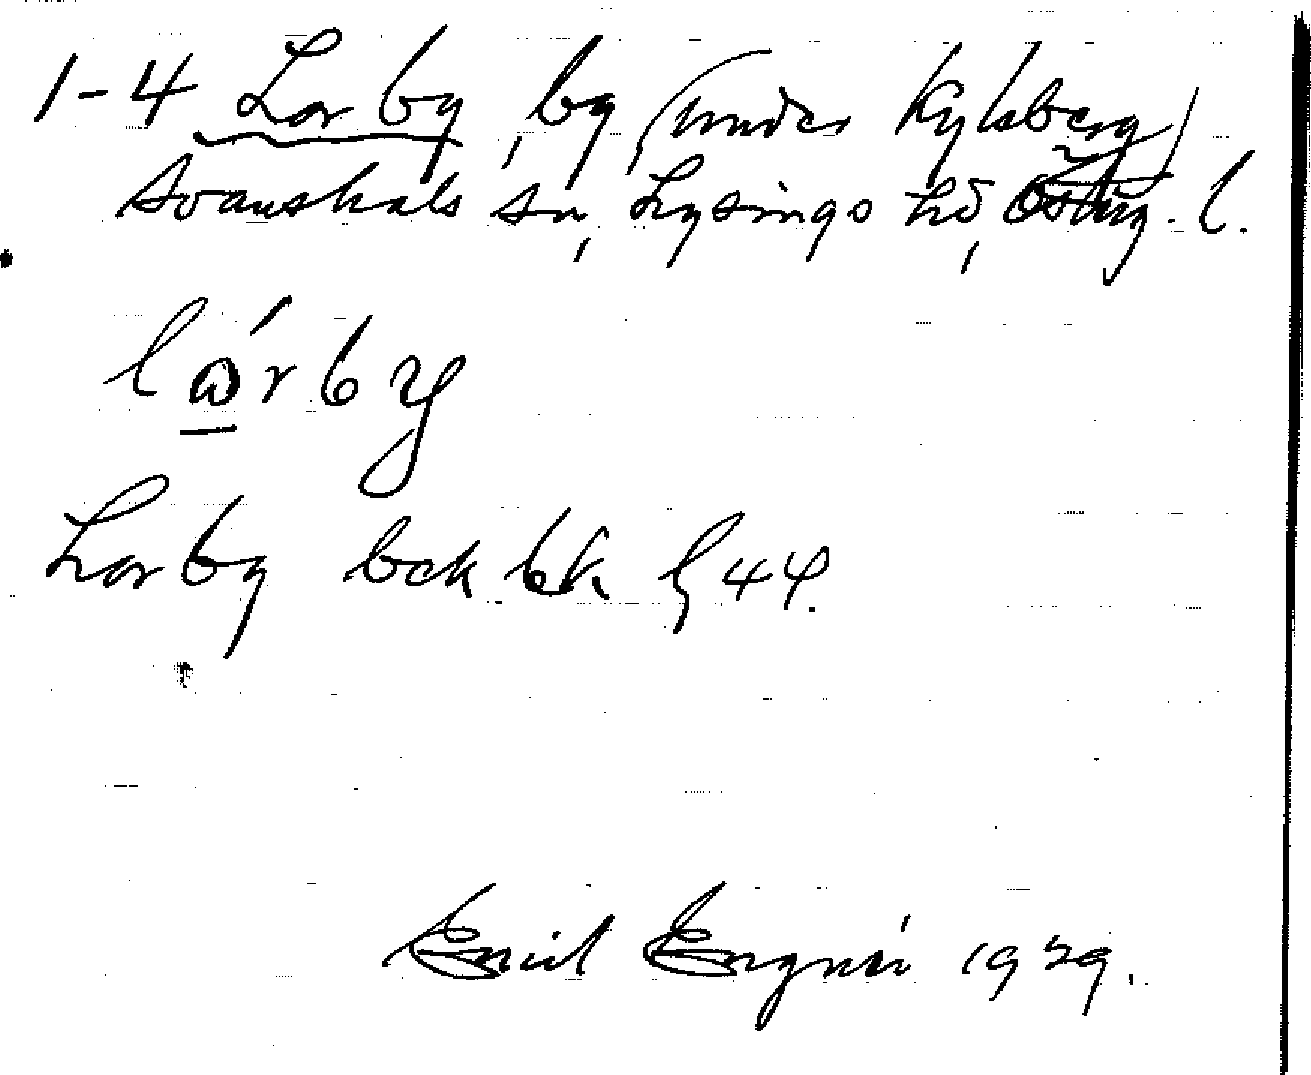 1-4 Lorby, by, (under Kylsberg)
Svanshals sn, Lysings hd, Östg. l.
lά̲rby
Lorby bck bk l 44.
Emil Engnér 1929.